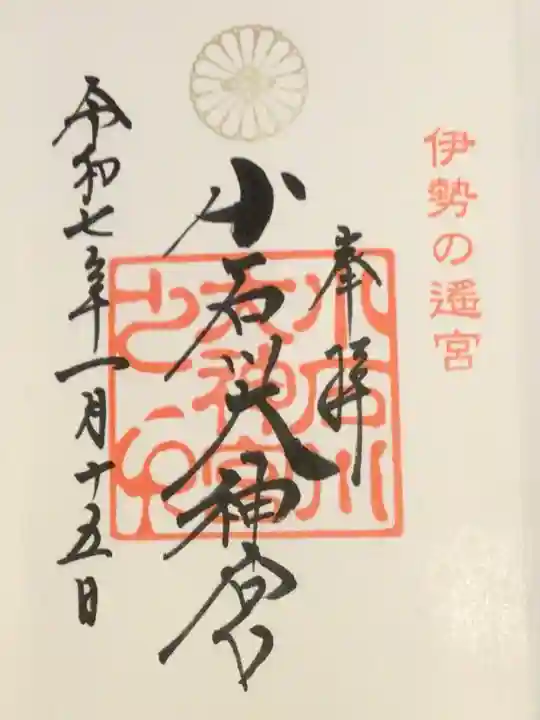 伊勢の遥宮
奉拝
小石川大神宮
小石川
大神宮
之印
令和七年一月十五日